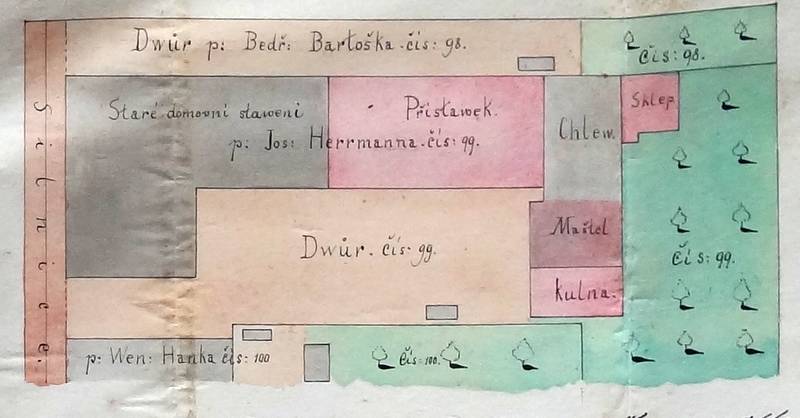 Dwůr p: Bedř: Bartoška čís: 98.
Čís: 98.
Silnice.
Staré domovní stawení
Přístawek.
p: Jos: Herrmanna čís: 99.
Chlew.
Sklep
Maštel
Dwůr. čís: 99.
Čís: 99.
kulna.
p: Wen: Hanka čís: 100
Čís: 100.